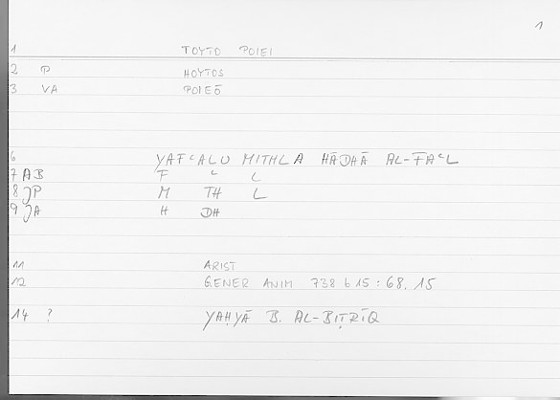 1
1 TOYTO POIEI
2 P HOYTOS
3 VA POIEŌ
6 YAFʿALU MITHLA HĀDHĀ AL-FAʿL
7 AB F ʿ L
8 JP M TH L
9 JA H DH
11 ARIST
12 GENER ANIM 738 b 15 : 68, 15
14 ? YAḤYĀ B. AL-BIṬRĪQ